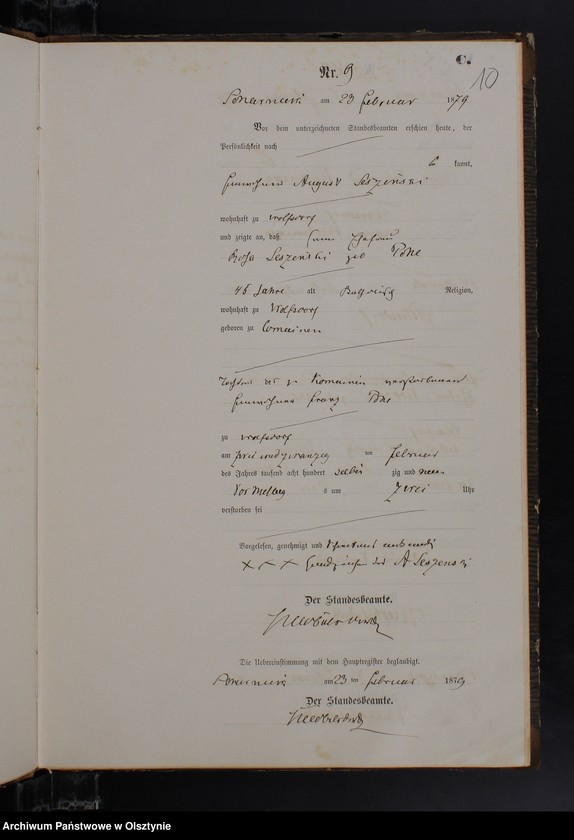 C.
10
Nr. 9
am 23 Februar 1879
Vor dem unterzeichneten Standesbeamten erschien heute, der
Persönlichkeit nach
kannt,
Einwohner August Leszenski
wohnhaft zu Wolfsdorf
und zeigte an, daß seine Ehefrau
Rosa Leszenski geb
45 Jahre alt katholisch Religion,
wohnhaft zu Wolfsdorf
geboren zu Comainen
Tochter des zu Komainen verstorbenen
Einwohner Franz
zu Wolfsdorf
am zwei und zwanzig ten Februar
des Jahres tausend acht hundert siebzig und neun
Vormittag s um zwei Uhr
verstorben sei
Vorgelesen, genehmigt und
XXX Handzeichen des A Leszenski
Der Standesbeamte.
Die Uebereinstimmung mit dem Hauptregister beglaubigt.
am 23 ten Februar 1879
Der Standesbeamte.
Archiwum Państwowe w Olsztynie